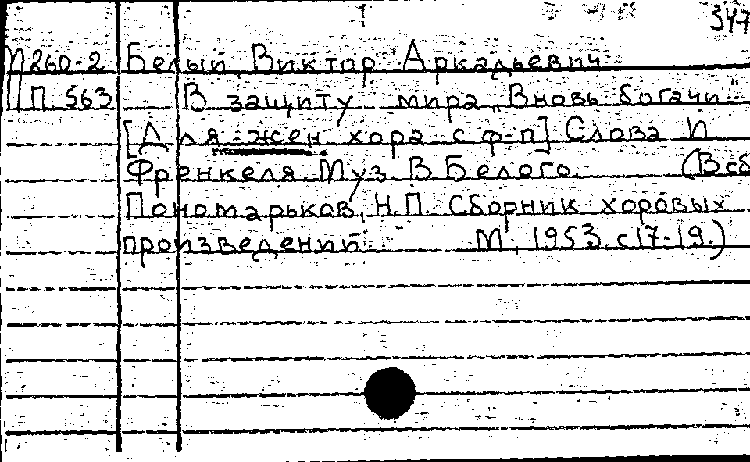 347
М260-2 Белый, Виктор Аркадьевич
П 563 В защиту мира. "Вновь богачи"
[Для жен хора с ф-п] Слова И
Френкеля Муз. В Белого. (В сб
Пономарьков, Н.П. Сборник хоровых
произведений М, 1953. с 17-19.)